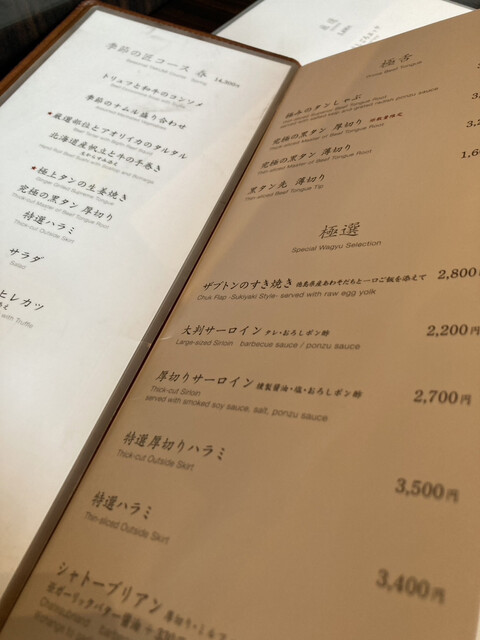 季節の匠コース 春 14,300円
トリュフと和牛のコンソメ
季節のナムル盛り合わせ
★厳選部位とアオリイカのタルタル
北海道産帆立と牛の手巻き
★極上タンの生姜焼き
Ginger Grilled Supreme Tongue
究極の黒タン 厚切り
Thick-cut Master of Beef Tongue Root
特選ハラミ
Thick-cut Outside Skirt
サラダ
Salad
ヒレカツ
with Truffle
極舌
Prime Beef Tongue
極みのタンしゃぶ
究極の黒タン 厚切り
Thick-sliced Master of Beef Tongue Root
究極の黒タン 薄切り
Thin-sliced Master of Beef Tongue Root
黒タン先 薄切り
Thin-sliced Beef Tongue Tip
極選
Special Wagyu Selection
ザブトンのすき焼き 徳島県産あわそだちと一口ご飯を添えて 2,800円
Chuk Flap -Sukiyaki Style- served with raw egg yolk
大判サーロイン タレ・おろしポン酢 2,200円
Large-sized Sirloin barbecue sauce / ponzu sauce
厚切りサーロイン 燻製醤油・塩・おろしポン酢 2,700円
Thick-cut Sirloin
served with smoked soy sauce, salt, ponzu sauce
特選厚切りハラミ 3,500円
Thick-cut Outside Skirt
特選ハラミ 3,400円
Thin-sliced Outside Skirt
シャトーブリアン 厚切り・
Chateaubriand